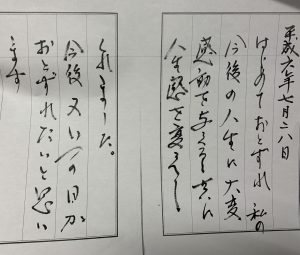 平成六年七月二八日
はじめておとずれ私の
今後の人生に大変
感動を与えると共に
人生感を変えて
くれました。
今後又いつの日か
おとずれたいと思い
ます